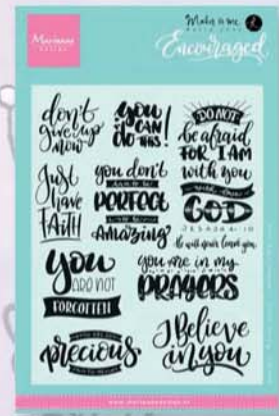 Marianne
design
Make is me
Encouraged
don't
give up
now
you
CAN
DO THIS!
DO NOT
be afraid
FOR I AM
with you
GOD
Just
have
FAITH
you don't
PERFECT
Amazing
He will never leave you
you
ARE NOT
FORGOTTEN
you are in my
PRAYERS
precious
I Believe
in you